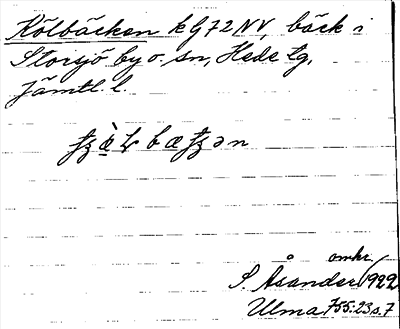 Kölbäcken k G72NV, bäck i
Storsjö by o. sn, Hede tg,
Jämtl. l.
omkr.
S. Åsander 1922
Ulma 755:23 s. 7